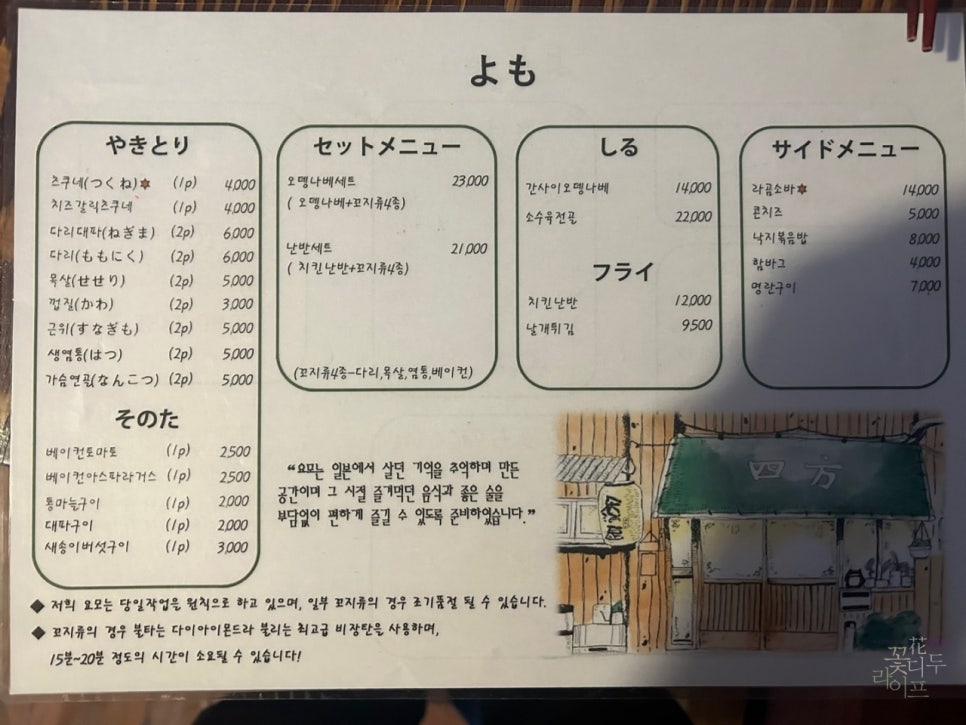 よも
やきとり
츠쿠네(つくね) (1p) 4,000
치즈갈릭츠쿠네 (1p) 4,000
다리대파(ねぎま) (2p) 6,000
다리(ももにく) (2p) 6,000
목살(せせり) (2p) 5,000
껍질(かわ) (2p) 3,000
근위(すなぎも) (2p) 5,000
생염통(はつ) (2p) 5,000
가슴연골(なんこつ) (2p) 5,000
そのた
베이컨토마토 (1p) 2,500
베이컨아스파라거스 (1p) 2,500
통마늘구이 (1p) 2,000
대파구이 (1p) 2,000
새송이버섯구이 (1p) 3,000
セットメニュー
오뎅나베세트 23,000
( 오뎅나베+꼬지류4종)
난반세트 21,000
( 치킨난반+꼬지류4종)
(꼬지류4종-다리,목살,염통,베이컨)
しる
간사이오뎅나베 14,000
소수육전골 22,000
フライ
치킨난반 12,000
날개튀김 9,500
サイドメニュー
라곰소바 14,000
콘치즈 5,000
낙지볶음밥 8,000
함바그 4,000
명란구이 7,000
“요모는 일본에서 살던 기억을 추억하며 만든
공간이며 그 시절 즐겨먹던 음식과 좋은 술을
부담없이 편하게 즐길 수 있도록 준비하였습니다.”
四方
◆ 저희 요모는 당일작업을 원칙으로 하고 있으며, 일부 꼬지류의 경우 조기품절 될 수 있습니다.
◆ 꼬지류의 경우 불타는 다이아이몬드라 불리는 최고급 비장탄을 사용하며,
15분~20분 정도의 시간이 소요될 수 있습니다!
花
꽃디두
라이프